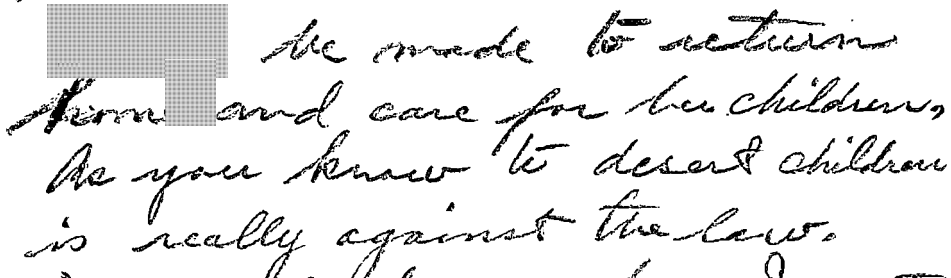 be made to return
home and care for her children,
As you know to desert children
is really against the law.